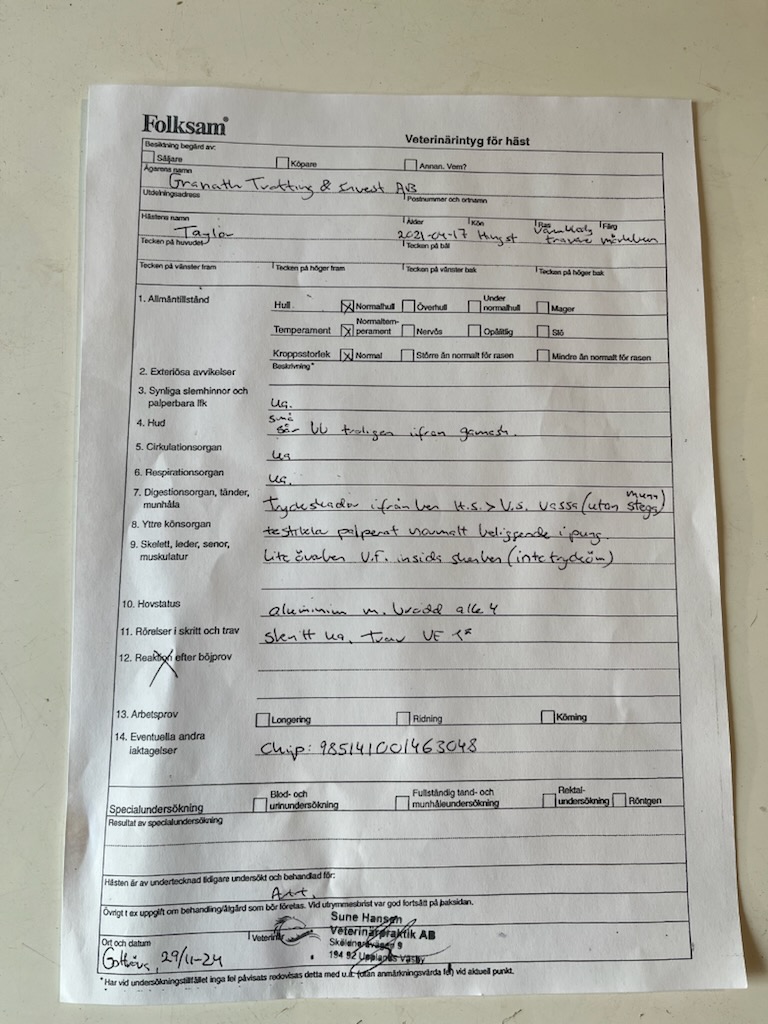 Folksam®
Veterinärintyg för häst
Besiktning begärd av:
Säljare Köpare Annan. Vem?
Ägarens namn
Granath Trotting & Invest AB
Utdelningsadress Postnummer och ortnamn
Hästens namn Ålder Kön Ras Färg
Taylor 2021-04-17 Hingst Varmblodig
travare mörkbrun
Tecken på huvudet Tecken på bål
Tecken på vänster fram Tecken på höger fram Tecken på vänster bak Tecken på höger bak
1. Allmäntillstånd Hull X Normalhull Överhull Under normalhull Mager
Temperament X Normaltem-perament Nervös Opålitlig Slö
Kroppsstorlek X Normal Större än normalt för rasen Mindre än normalt för rasen
2. Exteriösa avvikelser Beskrivning*
3. Synliga slemhinnor och
palperbara lfk ua.
4. Hud små sår troligen ifrån gamash.
5. Cirkulationsorgan ua
6. Respirationsorgan ua.
7. Digestionsorgan, tänder,
munhåla H.S. > V.S. vassa (utan munstege)
8. Yttre könsorgan testiklar palperat normalt beliggende i pung.
9. Skelett, leder, senor,
muskulatur lite överben V.F. insida skenben (inte trycköm)
10. Hovstatus aluminium m. brodd alla 4
11. Rörelser i skritt och trav skritt ua, trav
12. Reaktion efter böjprov
13. Arbetsprov Longering Ridning Körning
14. Eventuella andra
iaktagelser Chip: 985141001463048
Specialundersökning Blod- och urinundersökning Fullständig tand- och munhåleundersökning Rektal-undersökning Röntgen
Resultat av specialundersökning
Hästen är av undertecknad tidigare undersökt och behandlad för:
Övrigt t ex uppgift om behandling/åtgärd som bör företas. Vid utrymmesbrist var god fortsätt på baksidan.
Ort och datum Veterinär
29/11-24
Sune Hansen
Veterinärpraktik AB
194 92 Upplands Väsby
*Har vid undersökningstillfället inga fel påvisats redovisas detta med u.a. (utan anmärkningsvärda fel) vid aktuell punkt.